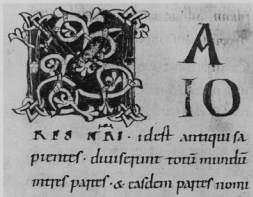 M A
IO
RES NR̄I · idest antiqui sa
pientes · diuiserunt totū mundū
intres partes · & easdem partes nomi